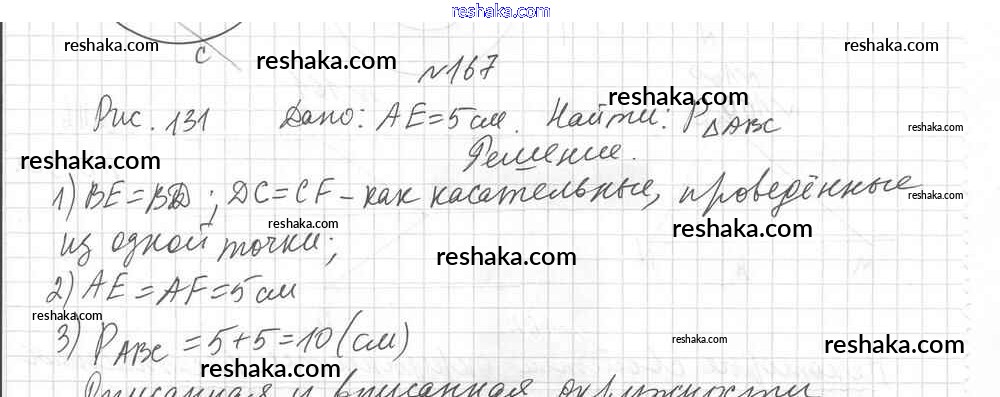 reshaka.com
reshaka.com reshaka.com
C
reshaka.com №167
reshaka.com
Рис. 131 Дано: AE=5см. Найти: P△ABC
reshaka.com
reshaka.com Решение.
1) BE=BD; DC=CF – как касательные, проведённые
reshaka.com
reshaka.com reshaka.com
из одной точки;
reshaka.com
2) AE=AF=5см
reshaka.com
3) PABC =5+5=10(см)
reshaka.com reshaka.com
reshaka.com
вписанная окружности